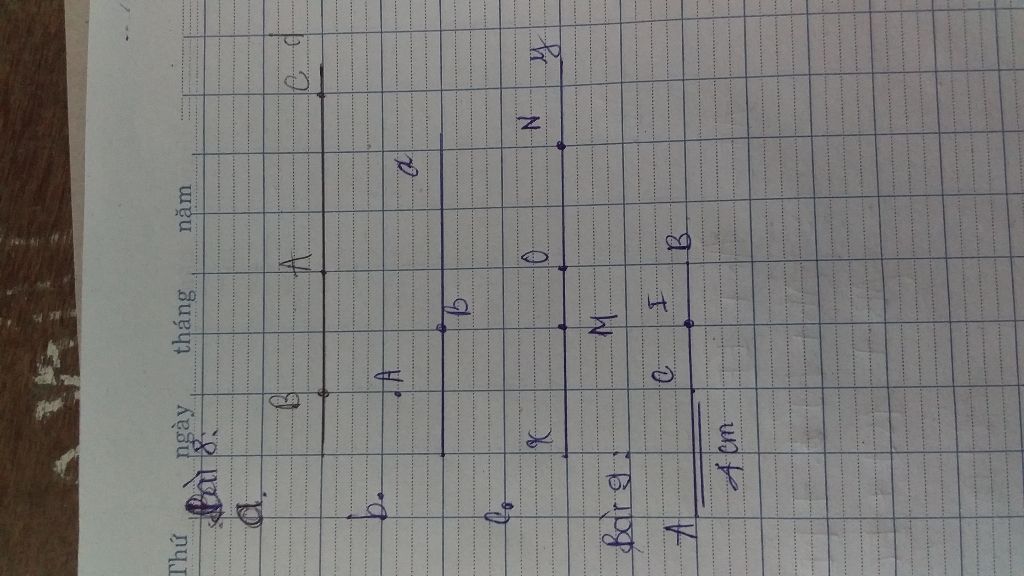 Thứ ngày tháng năm
Bài 8.
a. B A C d
b. A B a
c. x M O N y
Bài 9.
A C I B
4 cm